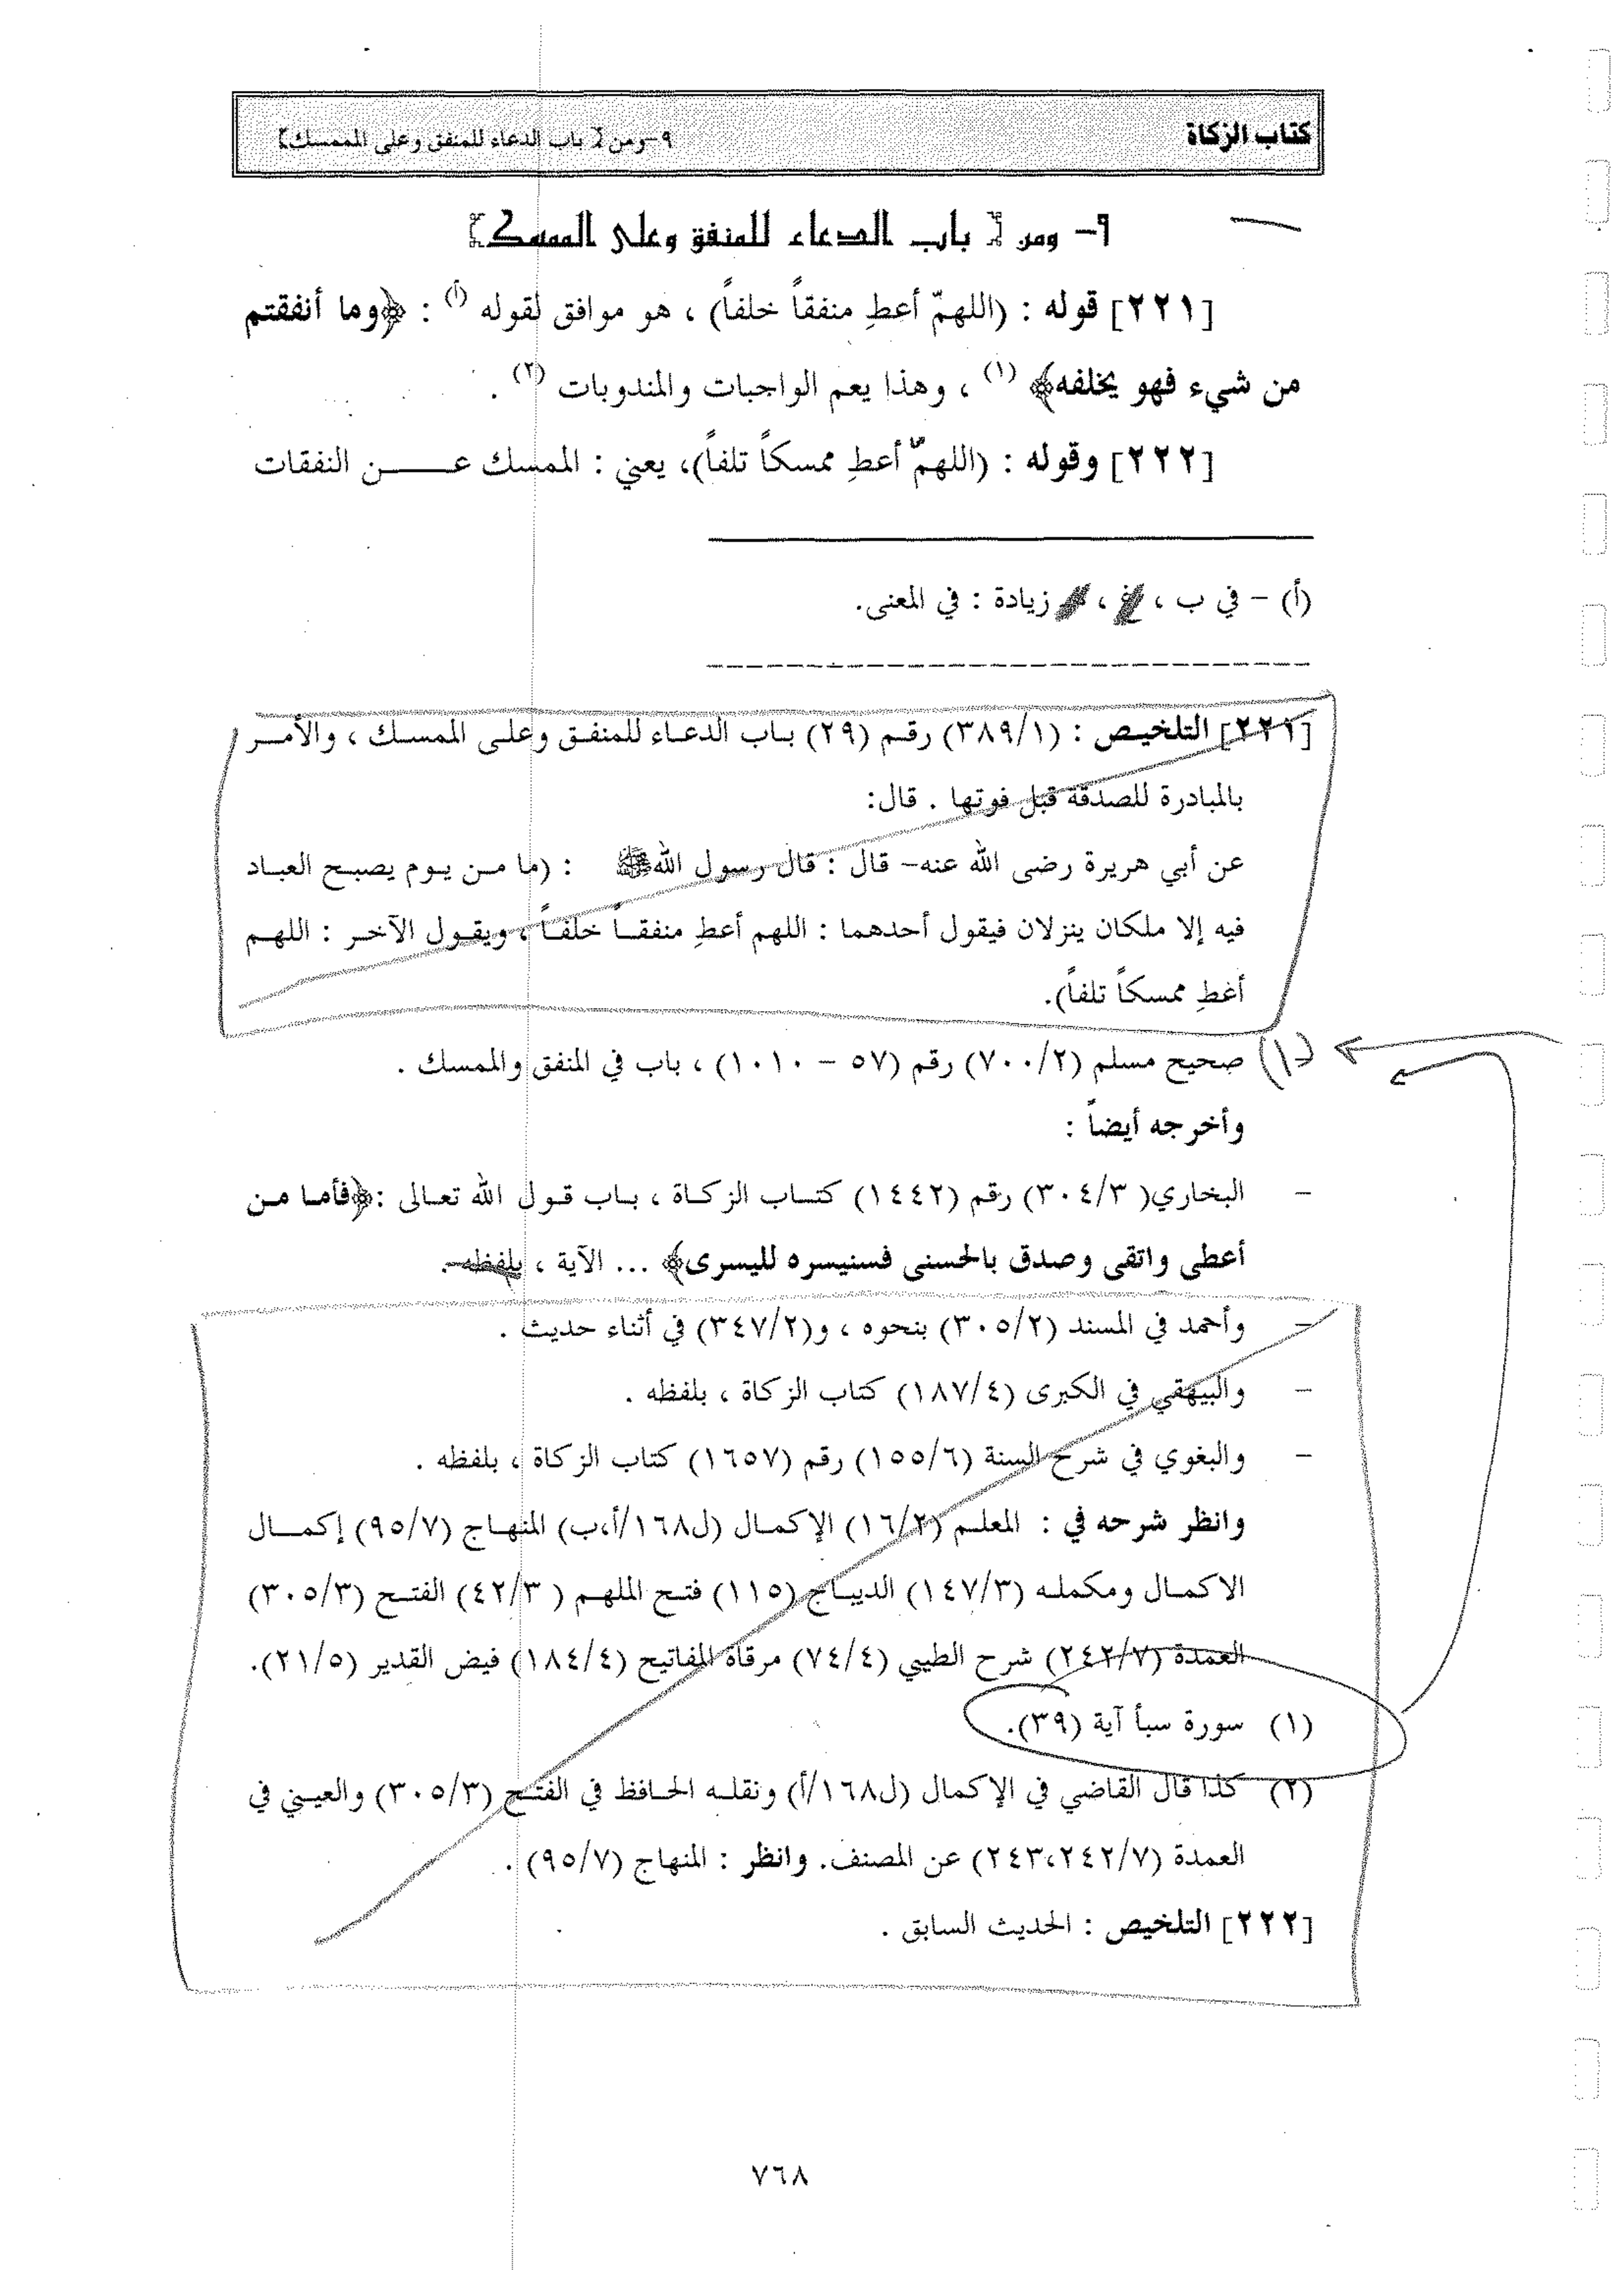 كتاب الزكاة
٩-ومن [ باب الدعاء للمنفق وعلى الممسك]
٩- ومن [ باب الدعاء للمنفق وعلى الممسك]
[٢٢١] قوله : (اللهمّ أعطِ منفقاً خلفاً) ، هو موافق لقوله (أ) : ﴿وما أنفقتم
من شيء فهو يخلفه﴾ (١) ، وهذا يعم الواجبات والمندوبات (٢) .
[٢٢٢] وقوله : (اللهمّ أعطِ ممسكاً تلفاً)، يعني : الممسك عـــن النفقات
(أ) - في ب ، ، زيادة : في المعنى.
[٢٢١] التلخيص : (٣٨٩/١) رقم (٢٩) باب الدعاء للمنفق وعلى الممسك ، والأمر
بالمبادرة للصدقة قبل فوتها . قال:
عن أبي هريرة رضى الله عنه- قال : قال رسول الله ﷺ : (ما من يوم يصبح العباد
فيه إلا ملكان ينزلان فيقول أحدهما : اللهم أعطِ منفقاً خلفاً ، ويقول الآخر : اللهم
أغطِ ممسكاً تلفاً).
(١) صحيح مسلم (٧٠٠/٢) رقم (٥٧ - ١٠١٠) ، باب في المنفق والممسك .
وأخرجه أيضاً :
- البخاري( ٣٠٤/٣) رقم (١٤٤٢) كتاب الزكاة ، باب قول الله تعالى :﴿فأما من
أعطى واتقى وصدق بالحسنى فسنيسره لليسرى﴾ ... الآية ، بلفظه .
- وأحمد في المسند (٣٠٥/٢) بنحوه ، و(٣٤٧/٢) في أثناء حديث .
- والبيهقي في الكبرى (١٨٧/٤) كتاب الزكاة ، بلفظه .
- والبغوي في شرح السنة (١٥٥/٦) رقم (١٦٥٧) كتاب الزكاة ، بلفظه .
وانظر شرحه في : المعلم (١٦/٢) الإكمال (ل١٦٨/أ،ب) المنهاج (٩٥/٧) إكمال
الاكمال ومكمله (١٤٧/٣) الديباج (١١٥) فتح الملهم ( ٤٢/٣) الفتح (٣٠٥/٣)
العمدة (٢٤٢/٧) شرح الطيبي (٧٤/٤) مرقاة المفاتيح (١٨٤/٤) فيض القدير (٢١/٥).
(١) سورة سبأ آية (٣٩).
(٢) كذا قال القاضي في الإكمال (ل١٦٨/أ) ونقله الحافظ في الفتح (٣٠٥/٣) والعيني في
العمدة (٢٤٣،٢٤٢/٧) عن المصنف. وانظر : المنهاج (٩٥/٧) .
[٢٢٢] التلخيص : الحديث السابق .
٧٦٨